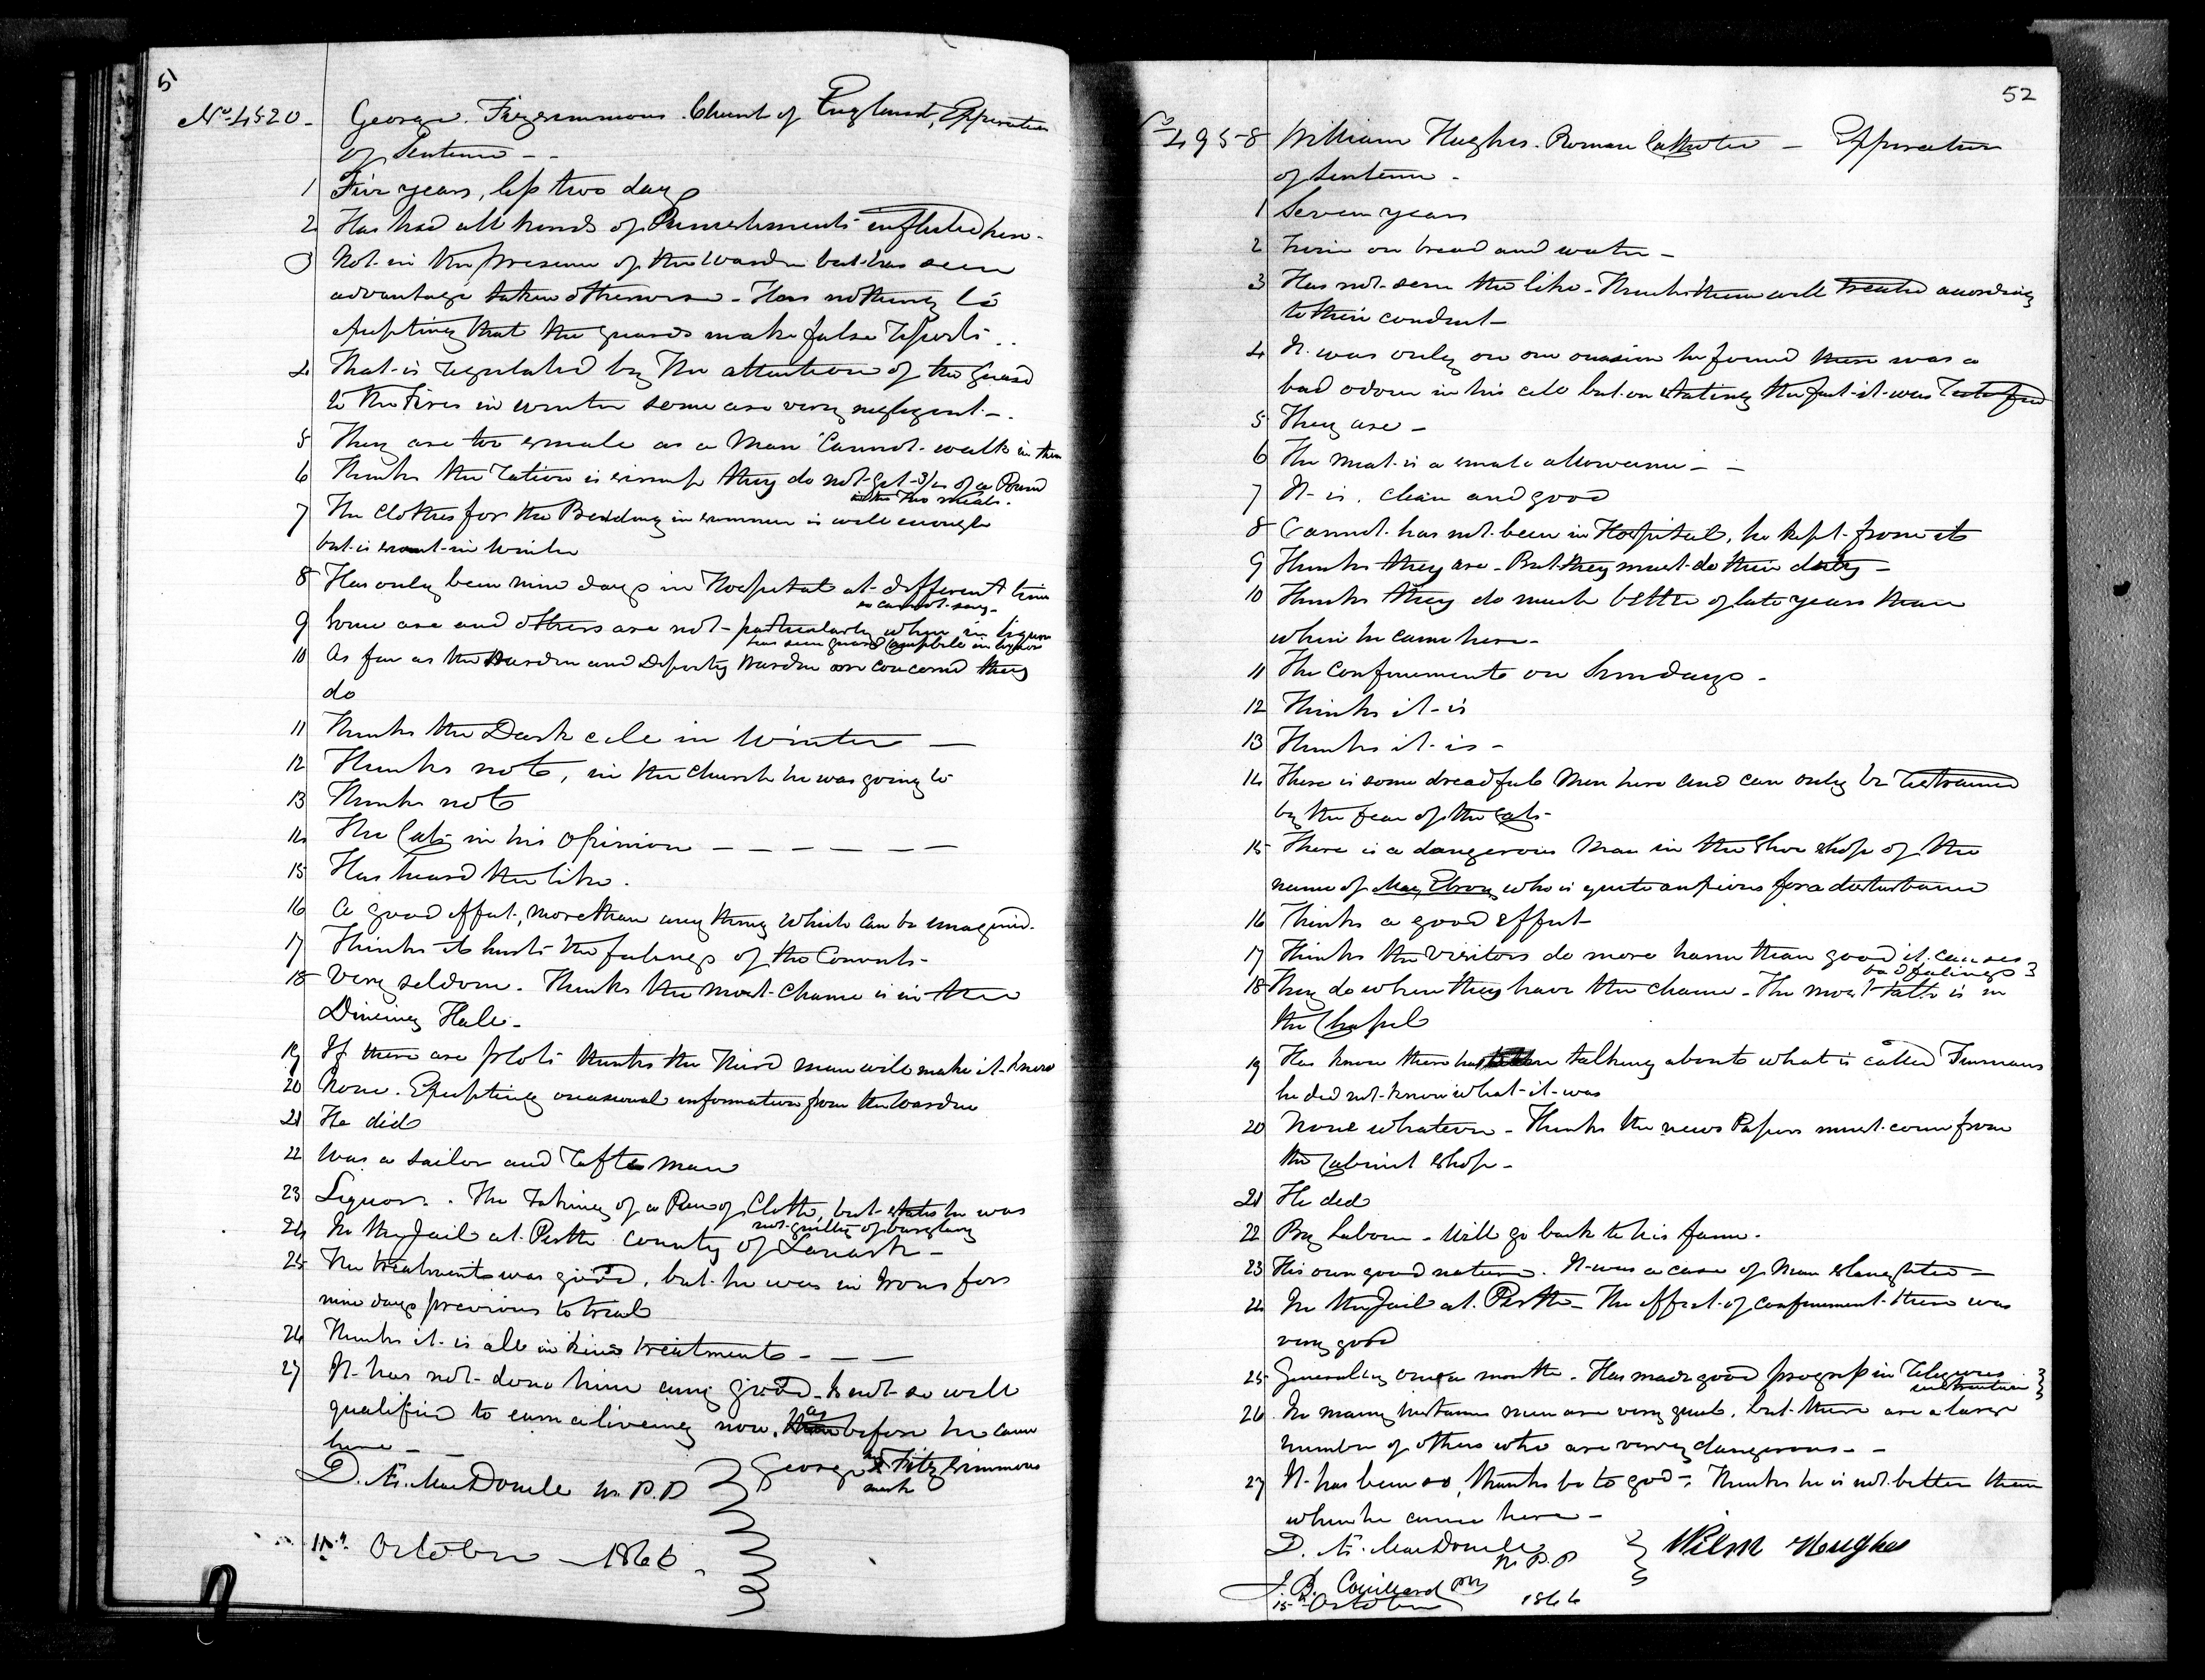 51
No. 4520 - George Fitzsimmons. Church of England, Expiration
of Sentence - -
1 Five years, less two days
2 Has had all kinds of Punishments inflicted here -
3 Not in the presence of the Warden but has seen
advantage taken otherwise - Has nothing to
excepting that the guards make false reports ..
4 That is regulated by the attention of the guard
to the Fires in winter some are very negligent -.
5 They are too small as a Man Cannot walk in them
6 Thinks the ration is they do not get 3/4 of a Pound
in the two meals.
7 The Clothes for the Bedding in summer is well enough
but is scant in Winter
8 Has only been nine days in Hospital at different times
so cannot say -
9 Some are and others are not - particularly when in liquor
has seen guard Campbell in liquor
10 As far as the Warden and Deputy Warden are concerned they
do
11 Thinks the Dark cell in Winter —
12 Thinks not, in the Church he was going to
13 Thinks not
14 The Cats in his Opinion — — — — — —
15 Has heard the like.
16 A good effect, more than any thing which can be imagined.
17 Thinks it hurts the feelings of the Convicts -
18 Very seldom. Thinks the most chance is in the
Dineing Hall -
19 If there are plots thinks the Third man will make it known
20 None. Excepting occasional information from the Warden
21 He did
22 Was a Sailor and Rafts Man
23 Liquor. The taking of a Piece of Cloth, but states he was
not guilty of burglary
24 In the Jail at Perth County of Lanark -
25 The treatment was good, but he was in Irons for
nine days previous to trial
26 Thinks it is all in Kind treatment - — —
27 It has not done him any good - Is not so well
qualified to earn a liveing now, as before he came
here - —
D. Æ. MacDonell W. P. P George his X Fitzsimmons
mark
October — 1866.
52
No 4958 William Hughes. Roman Catholic — Expiration
of Sentence -
1 Seven years
2 Twice on bread and water -
3 Has not seen the like - Thinks them well treated according
to their conduct -
4 It was only on one occasion he found there was a
bad odour in his cell but on stating the fact it was rectified
5 They are -
6 The meat is a small allowance - -
7 It is. clean and good
8 Cannot has not been in Hospital, he kept from it
9 Thinks they are - But they must do their duty -
10 Thinks they do much better of late years than
when he came here -
11 The confinement on Sundays -
12 Thinks it is
13 Thinks it is -
14 There is some dreadful Men here and can only be restrained
by the fear of the Cats -
15 There is a dangerous Man in the Shoe Shop of the
name of who is quite anxious for a disturbance
16 Thinks a good effect
17 Thinks the Visitors do more harm than good it causes
bad feelings
18 They do when they have the chance - The most talk is in
the Chapel
19 Has know there has talking about what is called Finnians
he did not know what it was
20 None whatever - Thinks the news Papers must come from
the Cabinet Shop -
21 He did
22 By Labour - Will go back to his farm -
23 His own good nature. It was a case of Man Slaughter -
24 In the Jail at Perth - The effect of confinement there was
very good
25 Generally once a month. Has made good progress in religious
instruction
26 In many instances men are very quiet, but there are a large
number of others who are very dangerous - -
27 It has been so, thanks be to god -. Thinks he is not better than
when he came here -
D. Æ. MacDonell
W. P. P Wilm Hughes
J. B. Couillard
15th October 1866